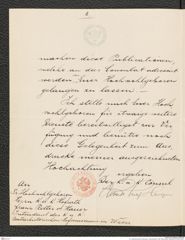 machen diese Publicationen,
welche an das Consulat adressirt
werden, Euer Hochwohlgeboren
gelangen zu lassen –
Ich stelle mich Euer Hoch
wohlgeboren für etwaige weitere
Dienste bereitwilligst zur Ver
fügung und benütze noch
diese Gelegenheit zum Aus
drucke meiner ausgezeichneten
Hochachtung
ergebenst
Der k. u. k. Consul
An
Sr. Hochwohlgeboren
Herrn k. k. Hofrath
Franz Ritter v. Hauer
Intendant des k. k.
naturhistorischen Hofmuseums in Wien